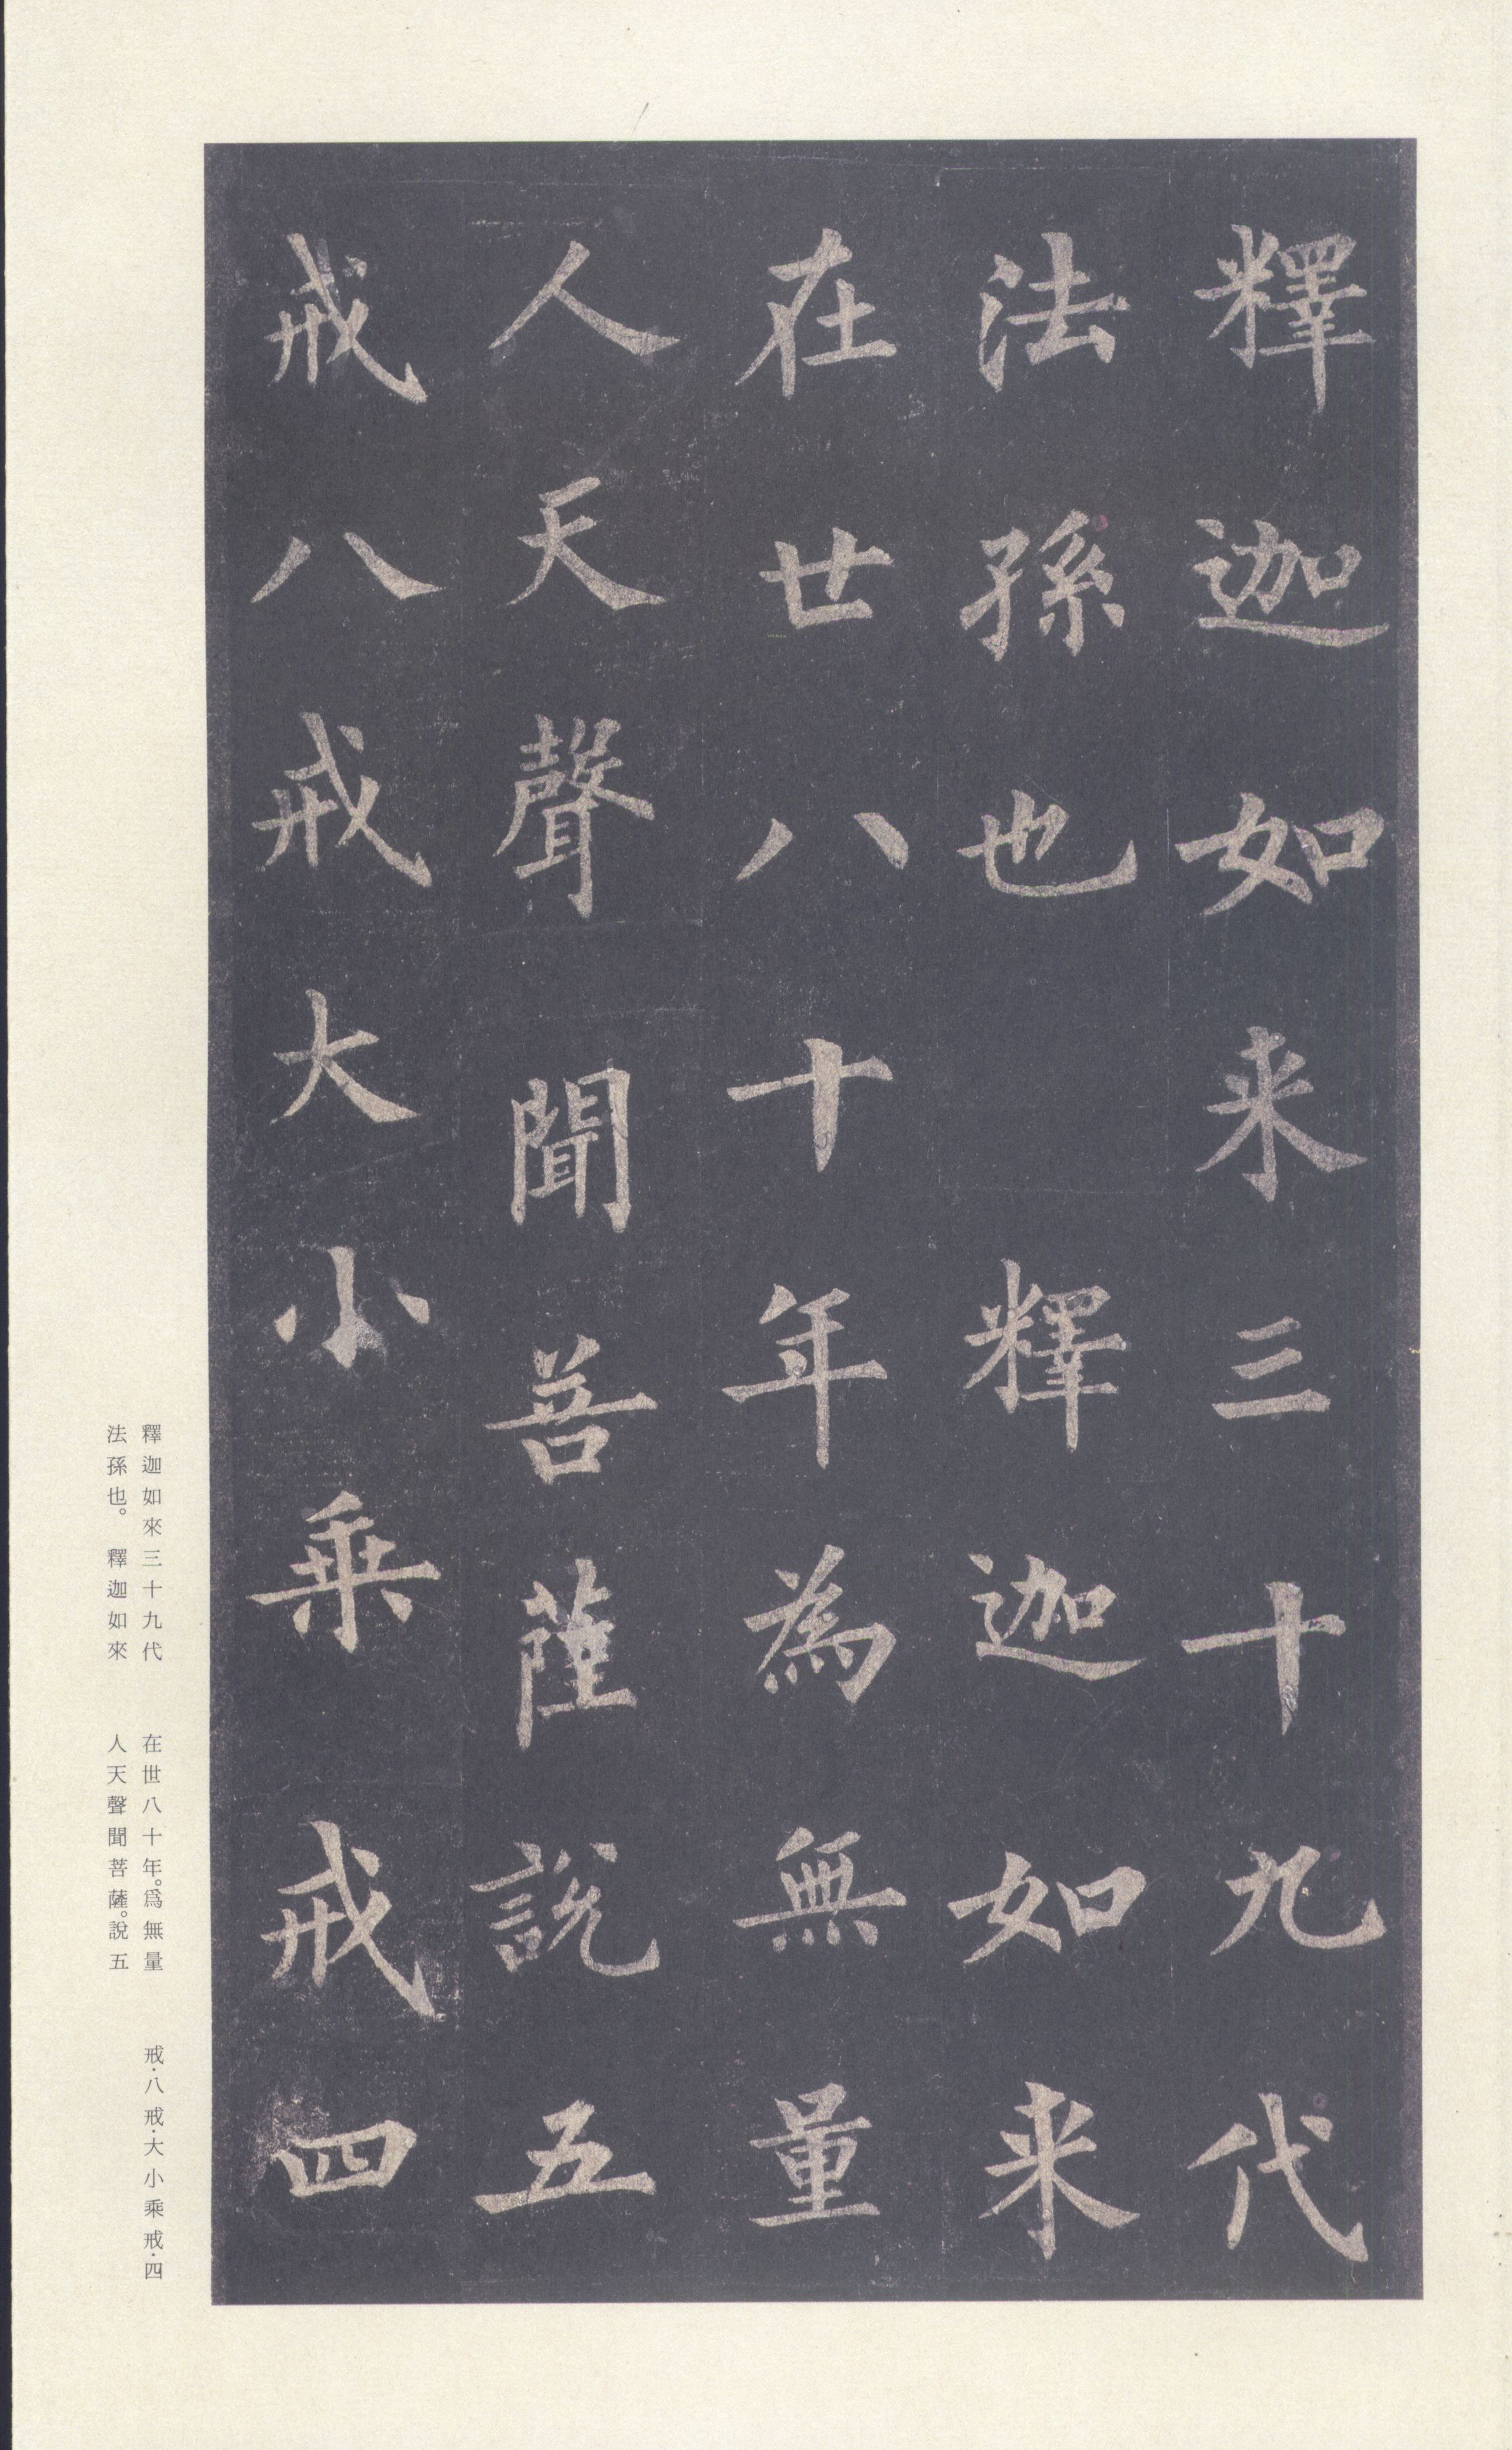 釋迦如来三十九代
法孫也 釋迦如来
在世八十年為無量
人天聲聞菩薩說五
戒八戒大小乗戒四
釋迦如來三十九代
法孫也。 釋迦如來
在世八十年。爲無量
人天聲聞菩薩。說五
戒·八戒·大小乘戒·四